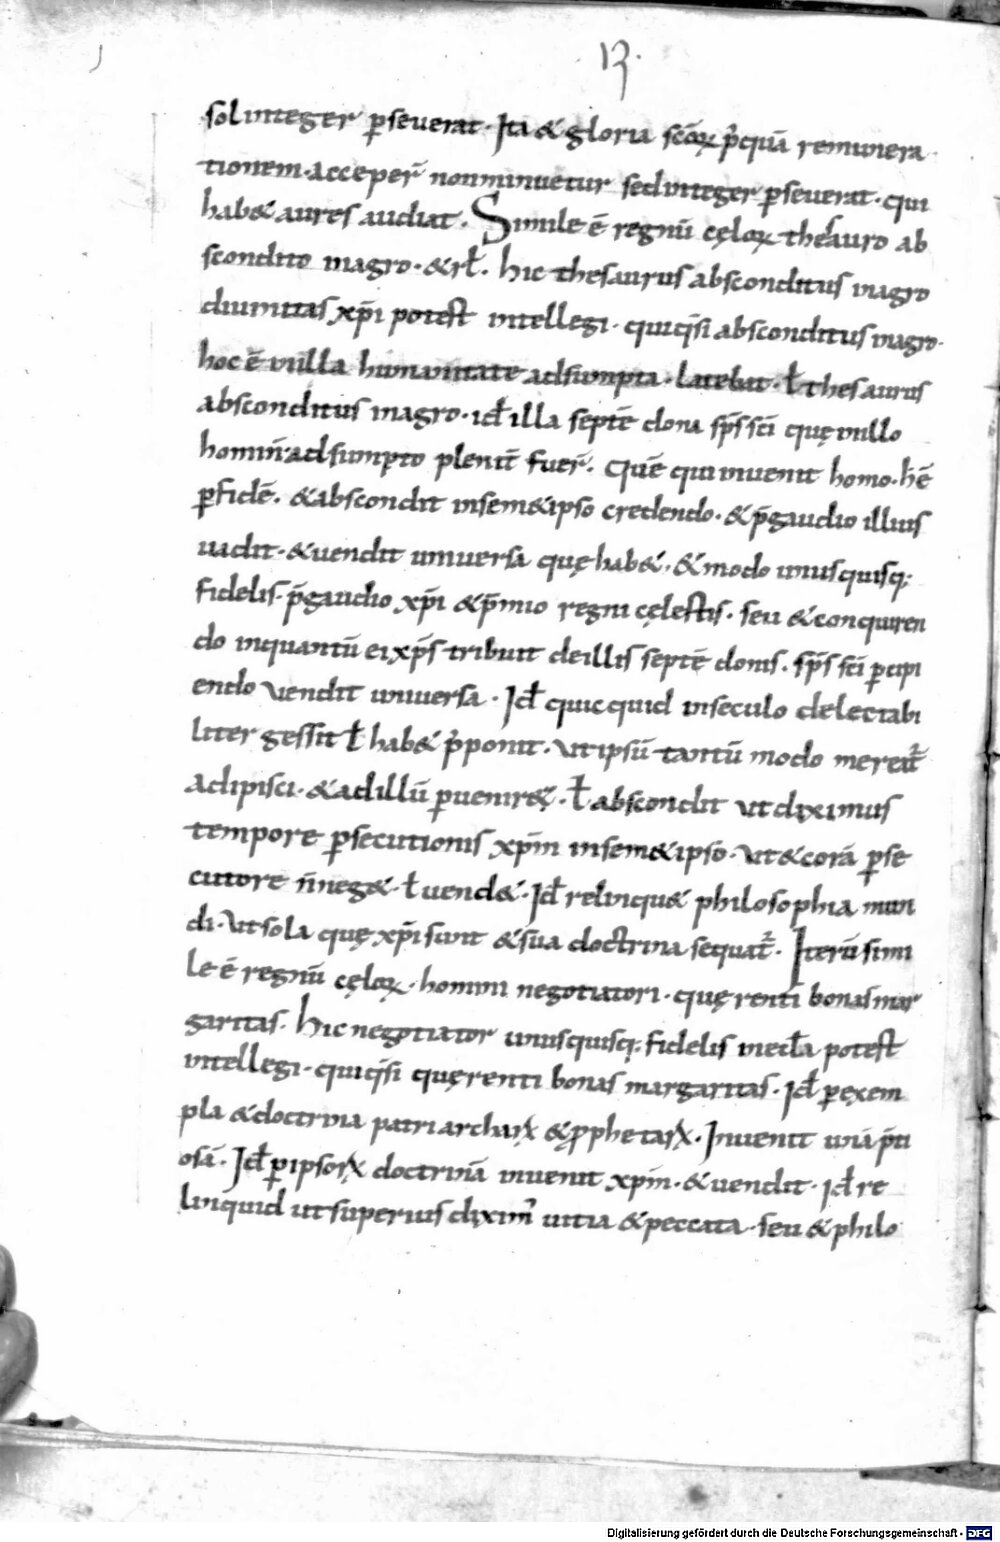 13.
sol integer p̱seuerat. Ita & gloria sc̄oꝝ p̄quā remunera
tionem. acceper̄ nonminuetur sed integer p̱seuerat. qui
hab& aures audiat. Simile ē regnū cęloꝝ thesauro ab
scondito inagro. & rł. hic thesaurus absconditus inagro
diuinitas xp̄i potest intellegi. quiq̄si absconditus inagro.
hoc ē inilla humanitate adsumpta. latebat. ł thesaurus
absconditus inagro. id ̄ illa septē dona sp̄s sc̄i quę inillo
homin̄ adsumpto plenit̄ fuer̄. Quē qui inuenit homo. h̄ē
p̱fidē. & abscondit insem&ipso credendo. & p̄gaudio illius
uadit. & uendit uniuersa quę hab&. & modo unusquisq;
fidelis. p̄gaudio xp̄i & p̄mio regni cęlestis. seu & conquiren
do inquantū ei xp̄s tribuit deillis septē donis. sp̄s sc̄i p̱cipi
endo vendit uniuersa. Id ̄ quicquid inseculo delectabi
liter gessit ł hab& p̄ponit. vt ipsū tantū modo mereat̄
adipisci. & adillū p̱uenire&#x328;. ł abscondit vt diximus
tempore p̱secutionis xp̄m insem&ipso. vt & corā p̱se
cutore n̄neg&. ł uend&. Id ̄ relinqu& philosophia mun
di. vt sola quę xp̄i sunt & sua doctrina sequat̄. Iterū simi
le ē regnū cęloꝝ. homini negotiatori. quęrenti bonas mar
garitas. Hic negotiator unusquisq; fidelis inecła potest
intellegi. quiq̄si quęrenti bonas margaritas. Id ̄ p̱exem
pla & doctrina patriarchaꝝ & prophetaꝝ. Inuenit unā p̄ti
osā. Id ̄ p̱ipsoꝝ doctrinā inuenit xp̄m. & uendit. id ̄ re
linquid ut superius dixim᾽ uitia & peccata. seu & philo
Digitalisierung gefördert durch die Deutsche Forschungsgemeinschaft - DFG